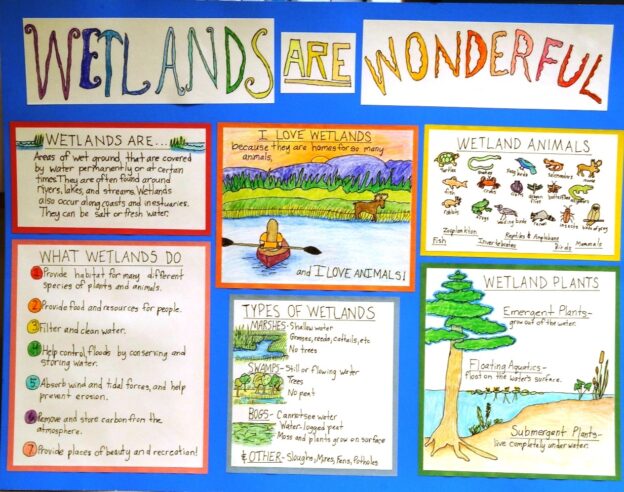 WETLANDS ARE WONDERFUL
WETLANDS ARE...
Areas of wet ground, that are covered
by water permanently or at certain
times. They are often found around
rivers, lakes, and streams. Wetlands
also occur along coasts and in estuaries.
They can be salt or fresh water.
WHAT WETLANDS DO
1 Provide habitat for many different
species of plants and animals.
2 Provide food and resources for people.
3 Filter and clean water.
4 Help control floods by conserving and
storing water.
5 Absorb wind and tidal forces, and help
prevent erosion.
6 Remove and store carbon from the
atmosphere.
7 Provide places of beauty and recreation!
I LOVE WETLANDS
because they are homes for so many
animals,
and I LOVE ANIMALS!
TYPES OF WETLANDS
MARSHES- Shallow water
Grasses, reeds, cattails, etc
No trees
SWAMPS- Still or flowing water
Trees
No peat
BOGS- Cannot see water
Water-logged peat
Moss and plants grow on surface
& OTHER- Sloughs, Mires, Fens, Potholes
WETLAND ANIMALS
Turtles
snakes
song birds
salamanders
moose
fish
crab
dragon
flies
rabbit
frogs
wading birds
insects
birds of prey
Zooplankton
Reptiles & Amphibians
Mammals
Fish
Invertebrates
Birds
WETLAND PLANTS
Emergent Plants-
grow out of the water.
Floating Aquatics-
float on the water's surface.
Submergent Plants-
live completely under water.